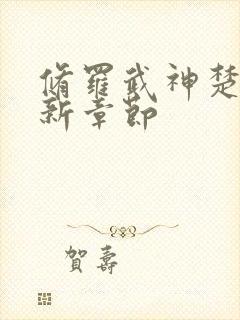 脩羅武神楚
新章節
賀壽